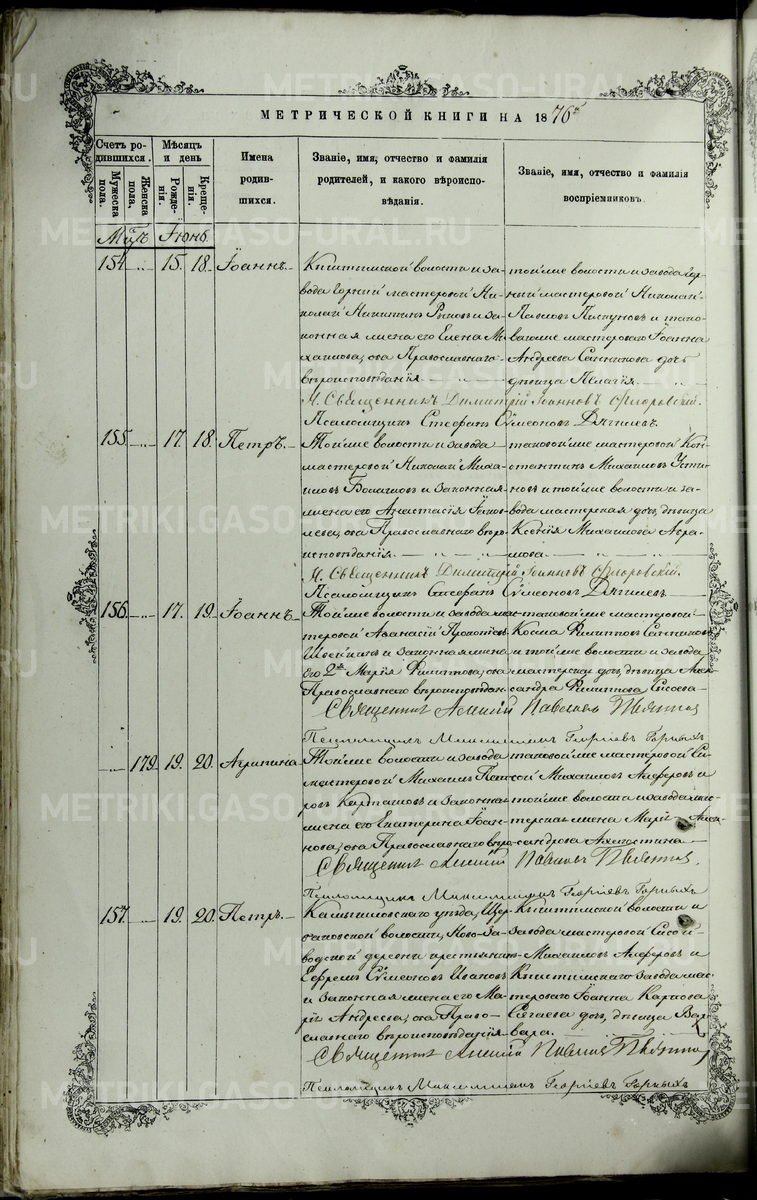 МЕТРИЧЕСКОЙ КНИГИ НА 1876й
Счетъ родившихся.
Мужеска пола.
Женска пола,
Мѣсяцъ и день
Рожденія.
Крещенія.
Имена родившихся.
Званіе, имя, отчество и фамилія родителей, и какого вѣроисповѣданія.
Званіе, имя, отчество и фамилія воспріемниковъ.
Мцъ Іюнь
154 15. 18. Іоаннъ
Кыштымской волости и завода горный мастеровой Николай Никитинъ и законная жена его Елена Михаилова, оба Православнаго вѣроисповѣданія
той же волости и завода горный мастеровой Николай Павловъ Пискуновъ и таковаго же мастероваго Іоанна Андреева Санникова дочь дѣвица Пелагія.
Священникъ Димитрій Іоанновъ
Псаломщикъ Стефанъ Сѵмеоновъ Дягилевъ.
155 17. 18. Петръ
Той же волости и завода мастеровой Николай Михаиловъ и законная жена его Анастасія Іаковлева, оба Православнаго вѣроисповѣданія.
таковой же мастеровой Константинъ Михаиловъ Устиновъ и той же волости и завода мастерская дочь, дѣвица Ксенія Михаилова
Священникъ Димитрій Іоанновъ
Псаломщикъ Стефанъ Сѵмеоновъ Дягилевъ
156 17. 19. Іоаннъ
Той же волости и завода мастеровой Аѳанасій Прокопіевъ и законная жена его 2я Марія Филиппова, оба Православнаго вѣроисповѣдан.
таковой же мастеровой Косма Филипповъ Санниковъ и той же волости и завода мастерская дочь, дѣвица Александра Филиппова Сысоева
Священникъ Алексій Павловъ
Псаломщикъ Максимиліанъ Георгіевъ Горныхъ
179 19. 20. Агрипина
Той же волости и завода мастеровой Михаилъ Петровъ Карташовъ и законная жена его Екатерина Іоаннова, оба Православнаго вѣро
таковой же мастеровой Сысой Михаиловъ Алферовъ и той же волости и завода мастерская жена Марія Александрова
Священникъ Алексій Павловъ
Псаломщикъ Максимиліанъ Георгіевъ Горныхъ
157 19. 20. Петръ
уѣзда, волости, Ново-Заводской деревни крестьянинъ Ефремъ Сѵмеоновъ Ивановъ и законная жена его Марія Андреева, оба Православнаго вѣроисповѣданія
Кыштымской волости и завода мастеровой Сысой Михаиловъ Алферовъ и Кыштымскаго завода мастероваго Іоанна Карпова дочь, дѣвица Варвара.
Священникъ Алексій Павловъ
Псаломщикъ Максимиліанъ Георгіевъ Горныхъ
METRIKI.GASO-URAL.RU